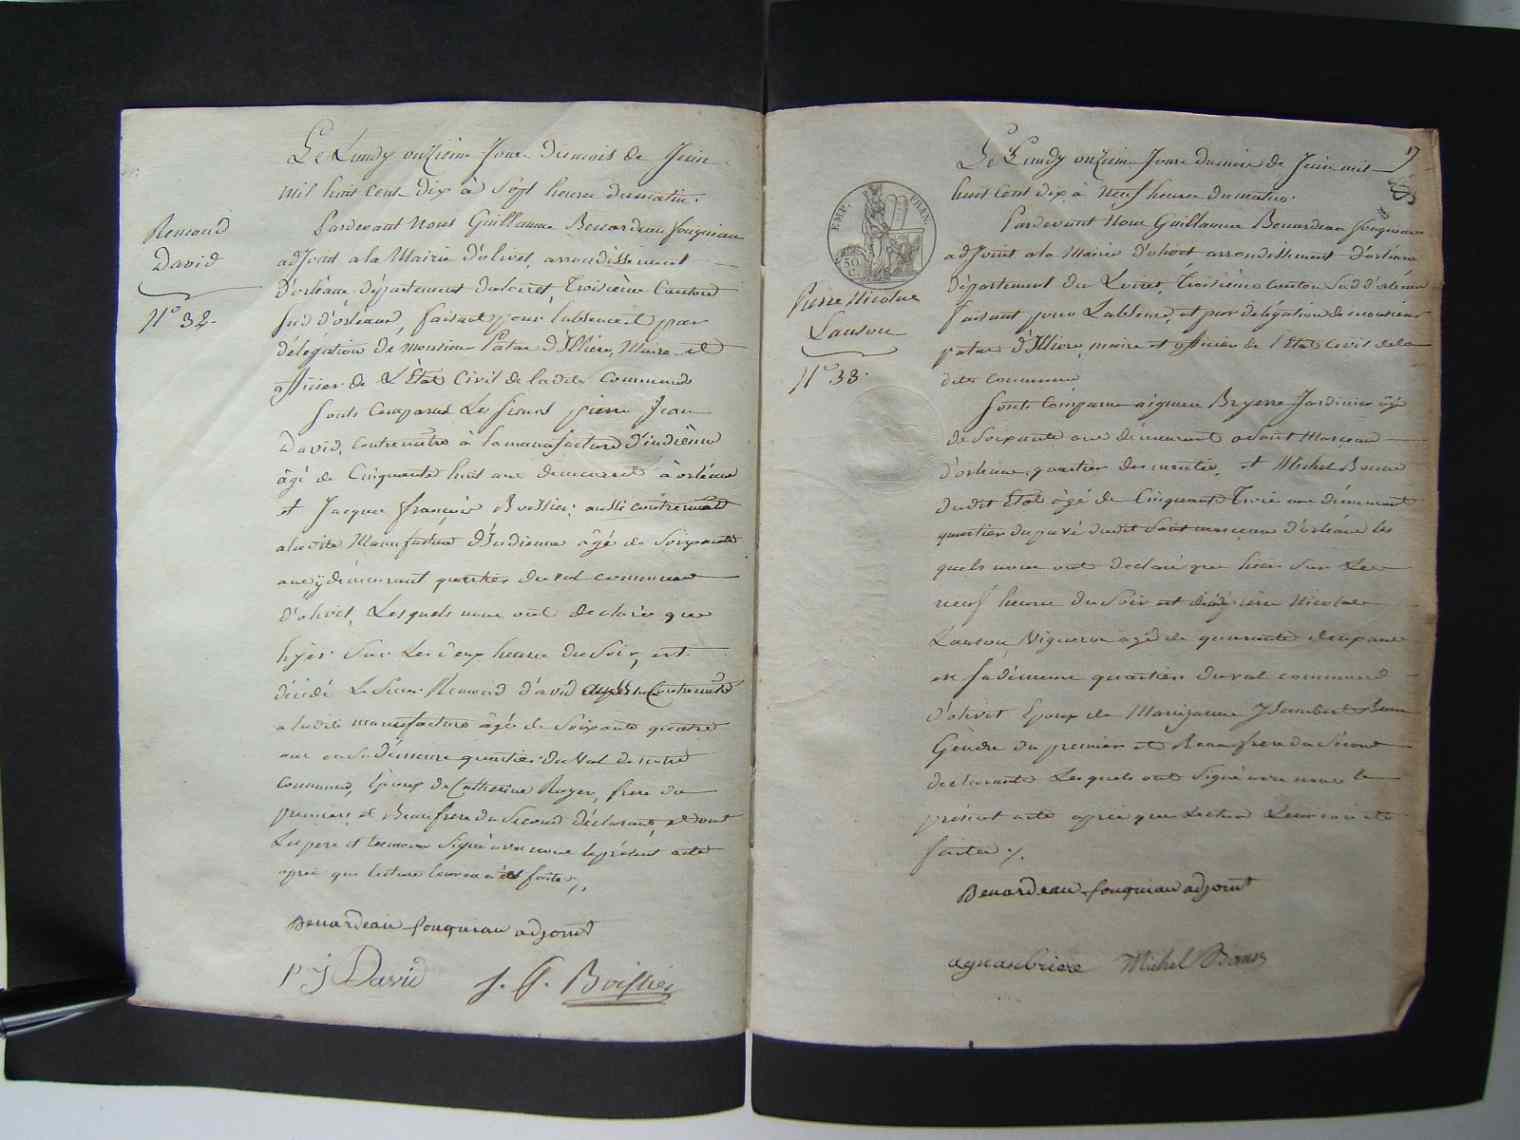 Le Lundy onzieme Jour du mois de Juin
mil huit cent dix à sept heure du matin.
Remond
David
N° 32.
Pardevant nous Guillaume Benardeau fouqueau
adjoint a la Mairie d'olivet, arrondissement
d'orléans département du Loiret, Troisième Canton
sud d'orléans, faisant pour l'absence et par
délégation de monsieur Patas d'Illiers, Maire et
officier de L'Etat Civil de ladite Commune
Sont Comparus Les sieurs pierre Jean
David, contremetre à la manufacture d'indienne
âgé de Cinquante huit ans demeurant à orléans
et Jacques françois Boissier aussi contremetre
a ladite Manufacture d'Indienne âgé de Soixante
ans y demeurant quartier du val commune
d'olivet, Lesquels nous ont declaré que
hyer sur Les deux heure du Soir, est
décédé Le Sieur Remond David Contremetre
a ladite manufacture âgé de Soixante quatre
ans en sa démeure quartier du Val de notre
Commune, Epoux de Catherine Royer, frere du
premier, et Beaufrere du Second déclarant, et ont
signé avec nous le présent acte
après que lecture leur en a été faite,
Benardeau fouqueau adjoint
p j David
J. f. Boissier
17
Le Lundy onzieme Jour du mois de Juin mil
huit cent dix à neuf heure du matin.
EMP. FRAN.
50
Pierre Nicolas
Lanson
N° 33.
Pardevant Nous Guillaume Benardeau fouqueau
adjoint a la Mairie d'olivet arrondissement d'orléans
département du Loiret, Troisième Canton Sud d'orléans
faisant pour L'absence, et par délégation de monsieur
patas d'Illiers, maire et officier de l'Etat Civil de la
dite Commune
Sont Comparus aignan Bryere Jardinier âgé
de Soixante ans demeurant a Saint Marceau
d'orléans, quartier des, et Michel Bonne
dudit Etat âgé de Cinquante Trois ans demeurant
quartier du pavé dudit Saint marceau d'orléans les
quels nous ont declaré que hier sur Les
neuf heure du Soir est décédé pierre Nicolas
Lanson Vigneron âgé de quarante ans
en sa démeure quartier du val commune
d'olivet Epoux de Mariejanne Beau
Gendre du premier et Beaufrere du Second
declarants Lesquels ont signé avec nous le
présent acte après que Lecture Leur en a été
faite ./.
Benardeau fouqueau adjoint
agnan briere Michel Bonne